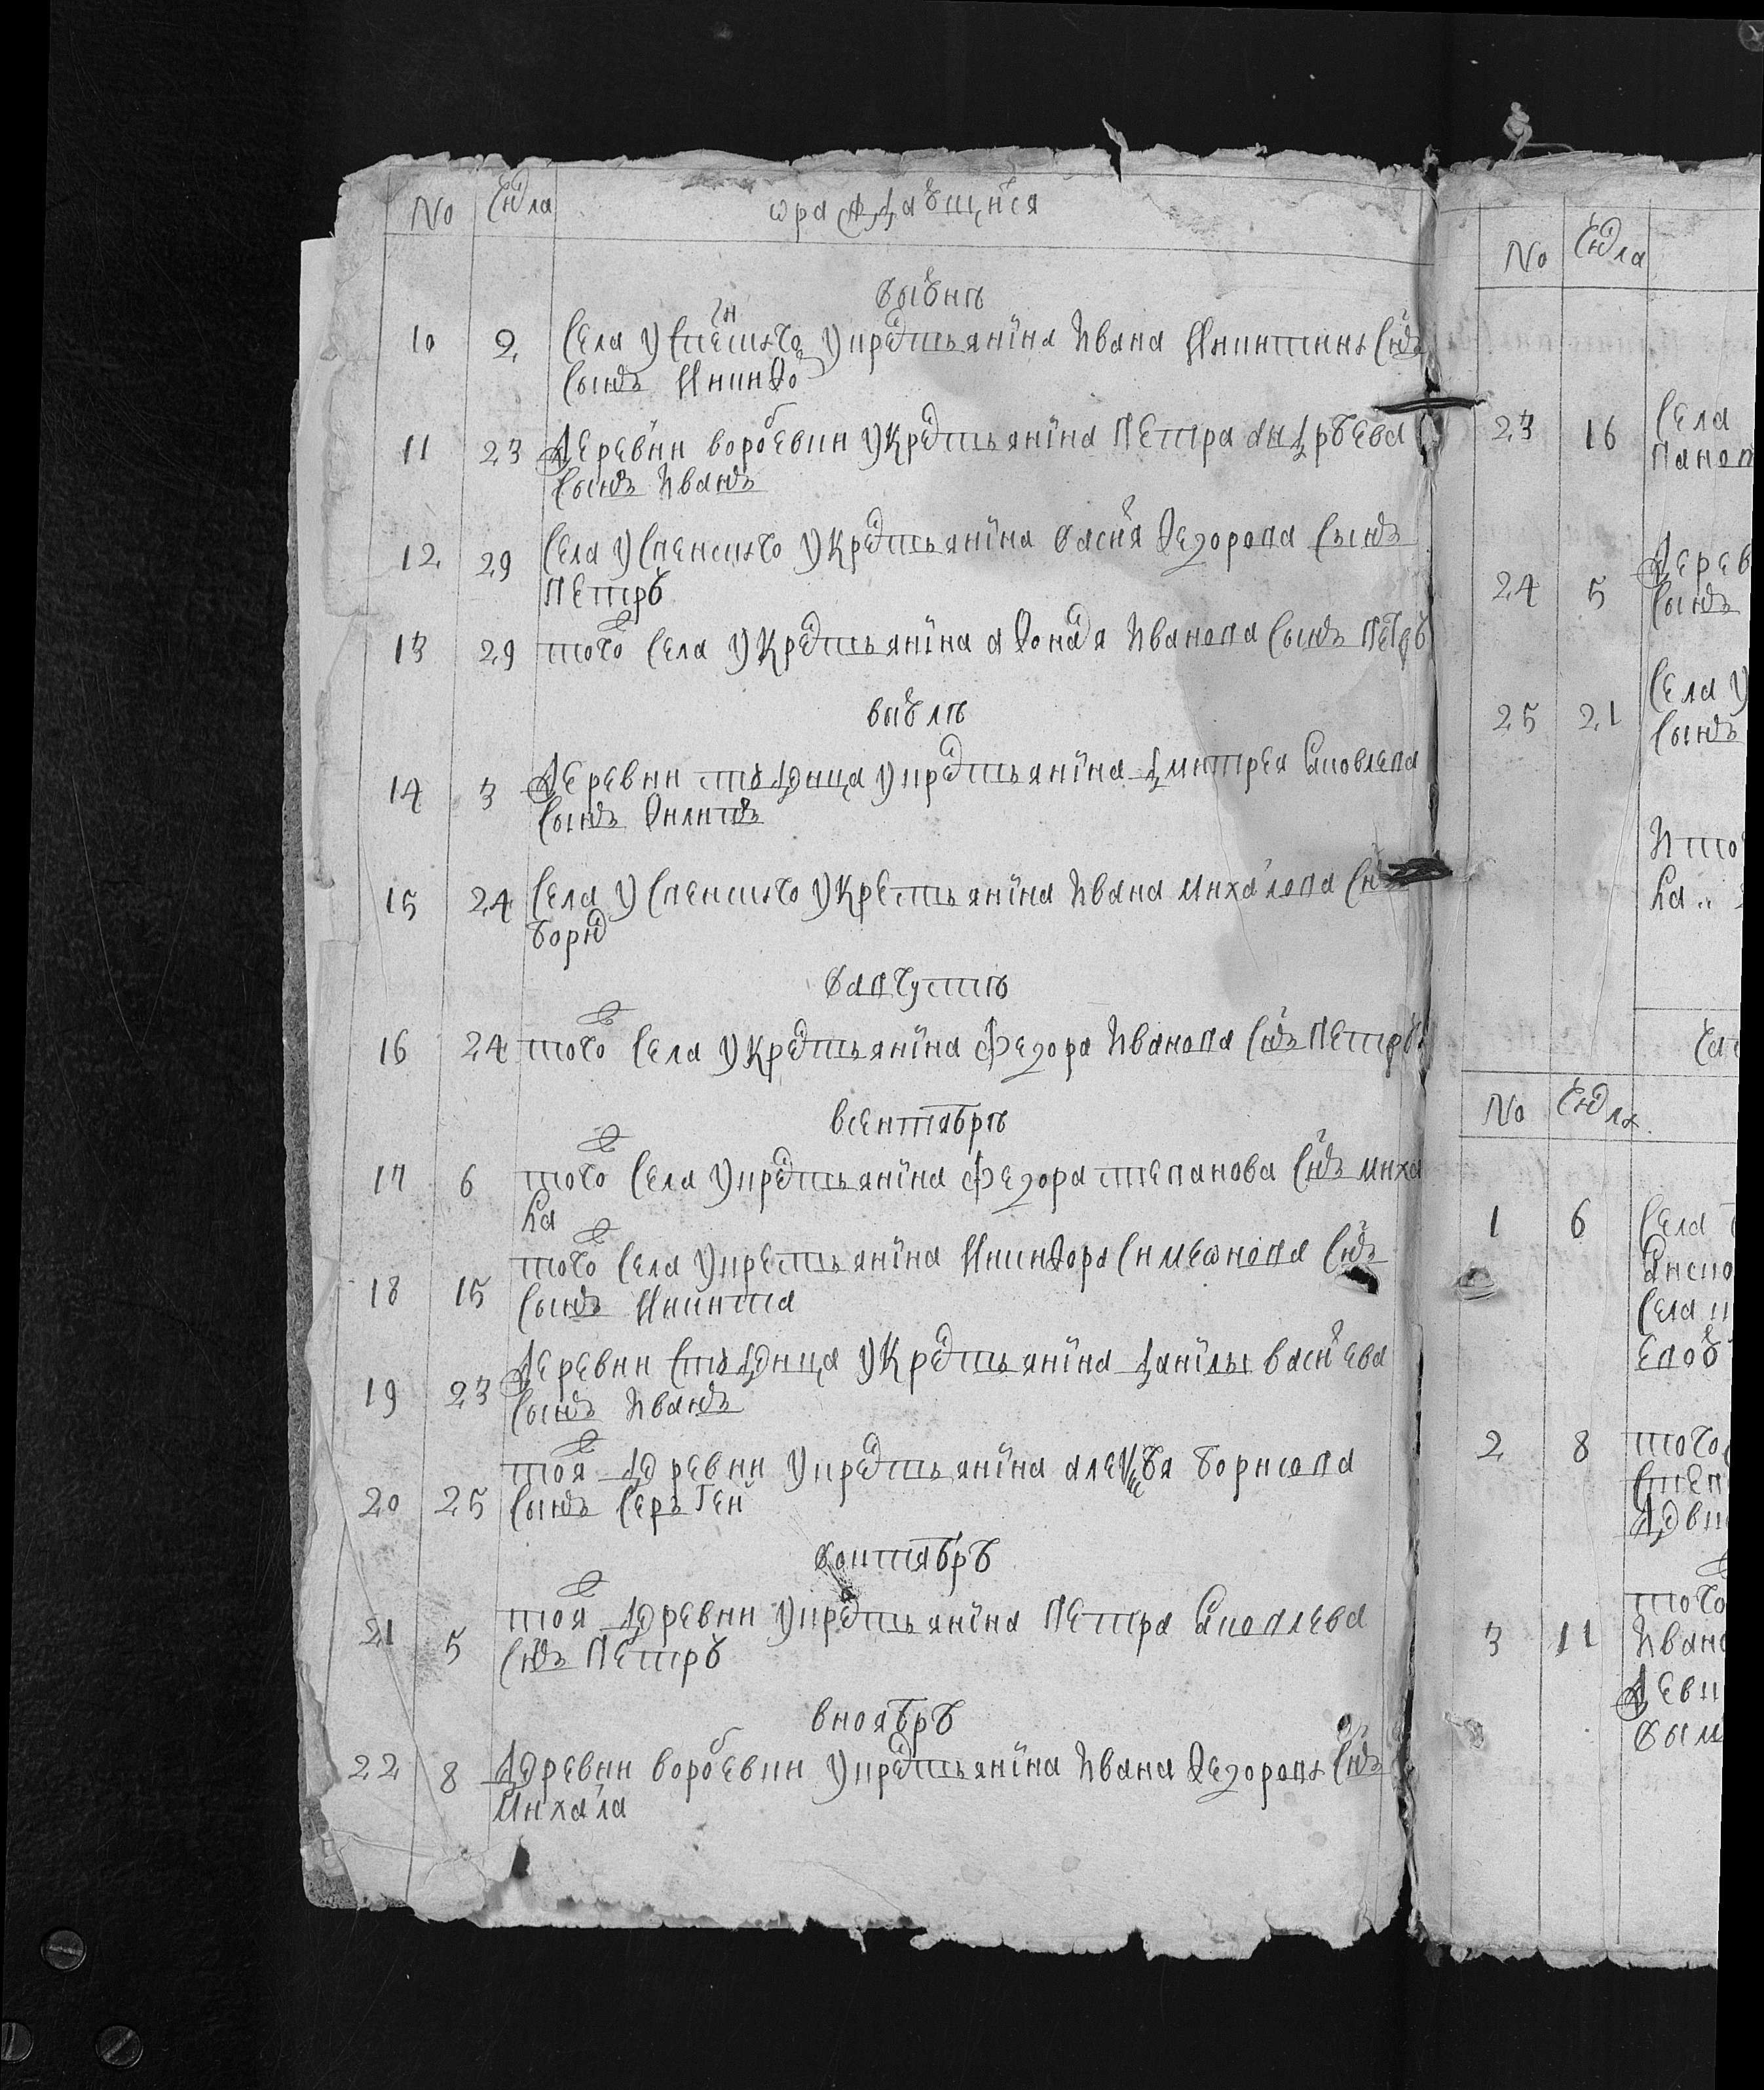 No Числа ѡраждающихся
въиюнѣ
10 2 Села Успенскаго у крестьянина Ивана Никитина сынъ
сынъ Никифо
11 23 Деревни воробьевки у крестьянина Петра андрѣева
сынъ Иванъ
12 29 Села Успенскаго у крестьянина васил҃я Ѳедорова сынъ
Петръ
13 29 того села у крестьянина аѲонас҃я Иванова сынъ Петръ
въиюлѣ
14 3 Деревни студенца у крестьянина дмитрея Яковлева
сынъ Ѳилипъ
15 24 Села Успенскаго у крестьянина Ивана михайлова сн҃ъ
борис
вавгустѣ
16 24 того села у крестьянина федора Иванова сн҃ъ Петръ
всентябрѣ
17 6 того села у крестьянина федора степанова сн҃ъ миха
ла
18 15 того села у крестьянина НикиѲора Симеѡнова сн҃ъ
сынъ Никита
19 23 Деревни Студенца у крестьянина данилы васил҃ева
сынъ Иванъ
20 25 тоя деревни у крестьянина алеѯѣя борисова
сынъ Серъгей
воктябрѣ
21 5 тоя деревни у крестьянина Петра Яковлева
сн҃ъ Петръ
вноябрѣ
22 8 деревни воробевки у крестьянина Ивана Ѳедорова сн҃ъ
Михайла
No Числа
23 16 Села
24 5 Дерев
сынъ
25 21 Села У
сынъ
No Числа
1 6 Села
Села
2 8 того
3 11 того
Ивана